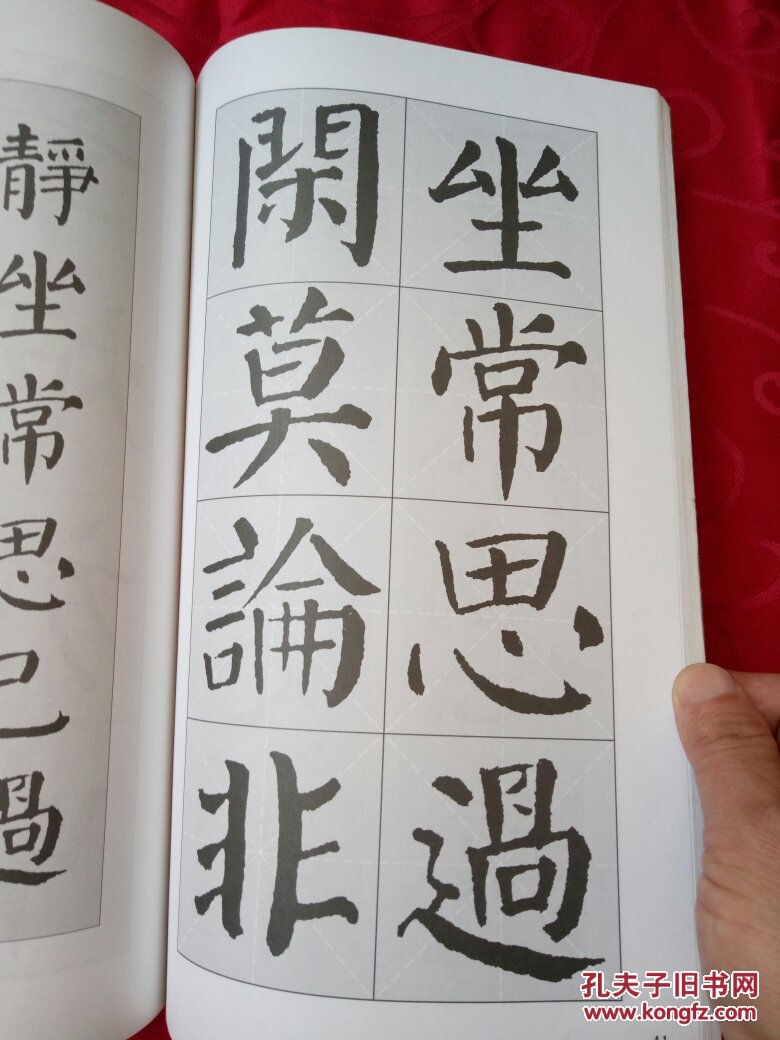 靜坐常思己過
坐常思過
閑莫論非
孔夫子旧书网
www.kongfz.com